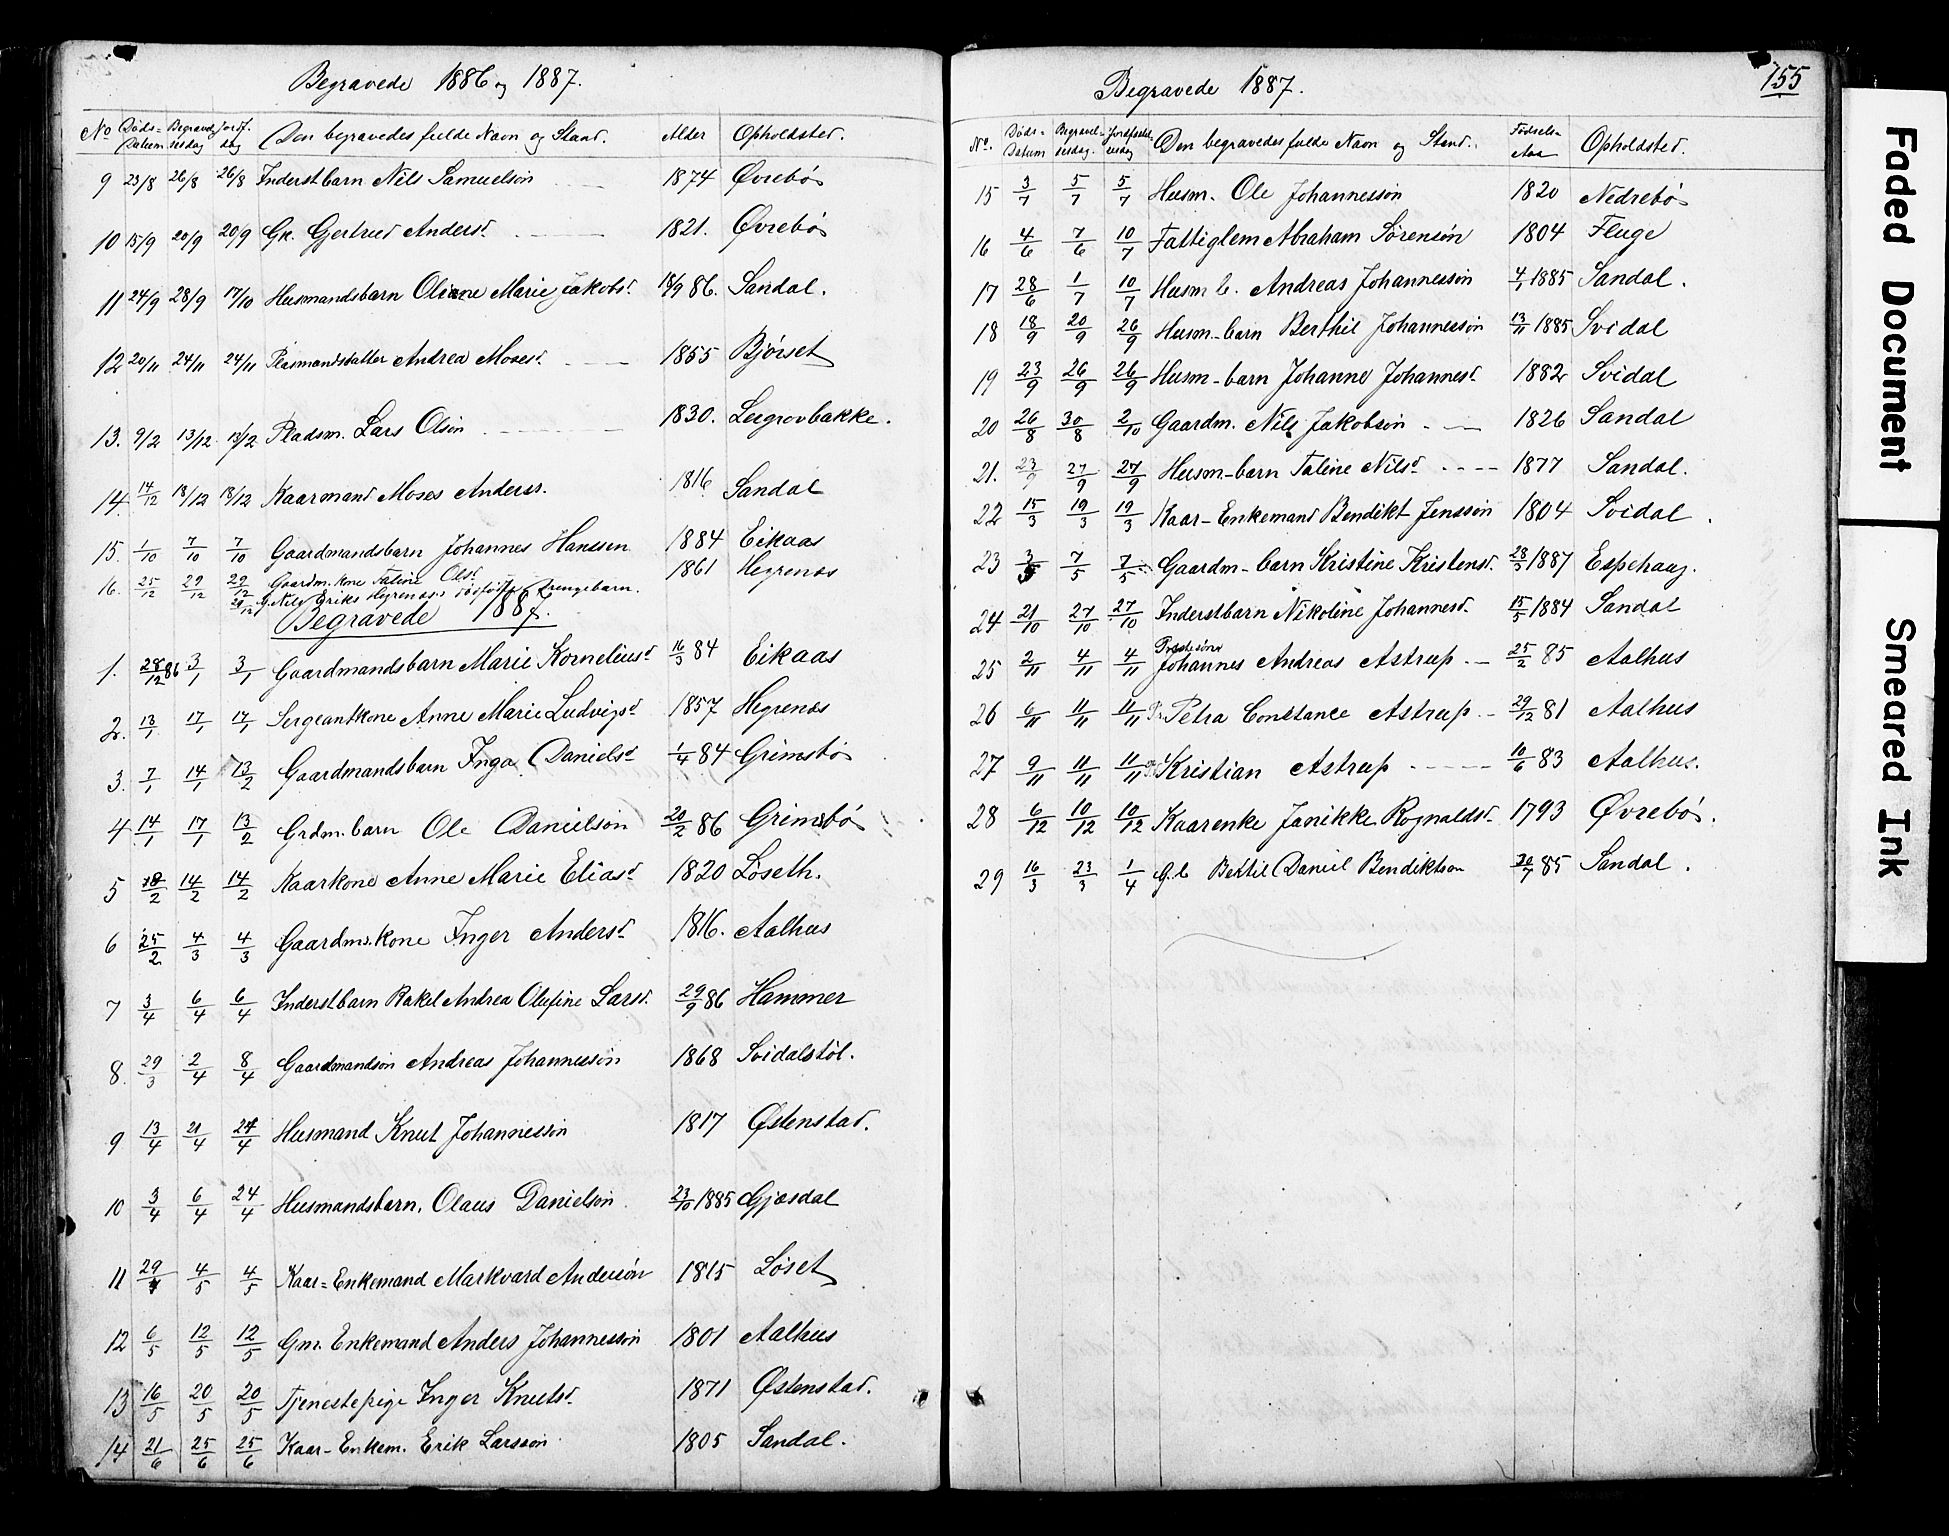 Begravede 1886 og 1887.
No Døds-Datum Begravelsesdag Jordf. dag Den begravedes fulde Navn og Stand. Alder Opholdsted.
9 23/8 26/8 26/8 Inderstbarn Nils Samuelsön 1874 Øvrebö
10 15/9 20/9 20/9 Gk. Gjertrud Andersd. 1821. Øvrebö
11 24/9 28/9 17/10 Husmandsbarn Oliane Marie Jakobsd. 18/9 86. Sandal.
12 20/11 24/11 24/11 Andrea Mosesd. 1855 Bjørset
13. 9/12 13/12 13/12 Pladsm. Lars Olsön 1830. Lergrovbakke.
14. 14/12 18/12 18/12 Kaarmand Moses Anderss. 1816 Sandal
15. 1/10 7/10 7/10 Gaardmandsbarn Johannes Hanssen 1884 Eikaas
16. 25/12 29/12 29/12 Gaardm.kone Taline Olsd. 1861 Hegrenes
29/12 G. Nils Eriks. Hegrenes's dödfödte Drengebarn.
Begravede 1887.
1. 28/12 86 3/1 3/1 Gaardmandsbarn Marie Korneliusd. 16/3 84 Eikaas
2. 13/1 17/1 17/1 Sergeantkone Anne Marie Ludvigsd. 1857 Hegrenes
3. 7/1 14/1 13/2 Gaardmandsbarn Inga Danielsd. 1/4 84 Grimsbö
4 14/1 17/1 13/2 Grdm.barn Ole Danielson 20/2 86 Grimsbö
5 18/2 14/2 14/2 Kaarkone Anne Marie Eliasd. 1820 Löseth.
6 25/2 4/3 4/3 Gaardms.kone Inger Andersd. 1816. Aalhus
7 3/4 6/4 6/4 Inderstbarn Rakel Andrea Olufine Larsd. 29/9 86 Hammer
8. 29/3 2/4 8/4 Gaardmandsön Andreas Johannessön 1868 Svidalstöl.
9 13/4 21/4 24/4 Husmand Knut Johannessön 1817 Østenstad.
10 3/4 6/4 24/4 Husmandsbarn. Olaus Danielsön 23/10 1885 Gjæsdal
11 29/4 4/5 4/5 Kaar-Enkemand Markvard Andersön 1815 Löset
12 6/5 12/5 12/5 Gm. Enkemand Anders Johannessön 1801 Aalhus
13 16/5 20/5 20/5 Tjenestepige Inger Knutsd. 1871 Østenstad.
14 21/6 25/6 25/6 Kaar-Enkem. Erik Larssön 1805 Sandal.
Begravede 1887.
155
No. Døds-Datum Begravelsesdag. Jordfæstelsesdag Den begravedes fulde Navn og Stand. Fødsels-Aar Opholdsted.
15 3/7 5/7 5/7 Husm. Ole Johannessön 1820 Nedrebö
16 4/6 7/6 10/7 Fattiglem Abraham Sörensön 1804 Fluge
17 28/6 1/7 10/7 Husm b. Andreas Johannessön 4/1 1885 Sandal.
18 18/9 20/9 26/9 Husm-barn Berthil Johannessön 13/11 1885 Svidal
19 23/9 26/9 26/9 Husm-barn Johanne Johannesd. 1882 Svidal
20 26/8 30/8 2/10 Gaardm. Nils Jakobsön 1826 Sandal
21. 23/9 27/9 27/9 Husm-barn Taline Nilsd. 1877 Sandal.
22 15/3 19/3 19/3 Kaar-Enkemand Bendikt Jenssön 1804 Svidal.
23 3/5 7/5 7/5 Gaardm-barn Kristine Kristensd. 28/3 1887 Espehaug.
24 21/10 27/10 27/10 Inderstbarn Nikoline Johannesd. 15/5 1884 Sandal
Præstesön
25 2/11 4/11 4/11 Johannes Andreas Astrup. 25/2 85 Aalhus
26 6/11 11/11 11/11 Petra Constance Astrup. 29/12 81 Aalhus
27 9/11 11/11 11/11 Kristian Astrup 10/6 83 Aalhus.
28 6/12 10/12 10/12 Kaarenke Janikke Rognaldsd. 1793 Øvrebö.
29 16/3 23/3 1/4 G.b Bertil Daniel Bendiktson 20/7 85 Sandal.
Faded Document
Smeared Ink